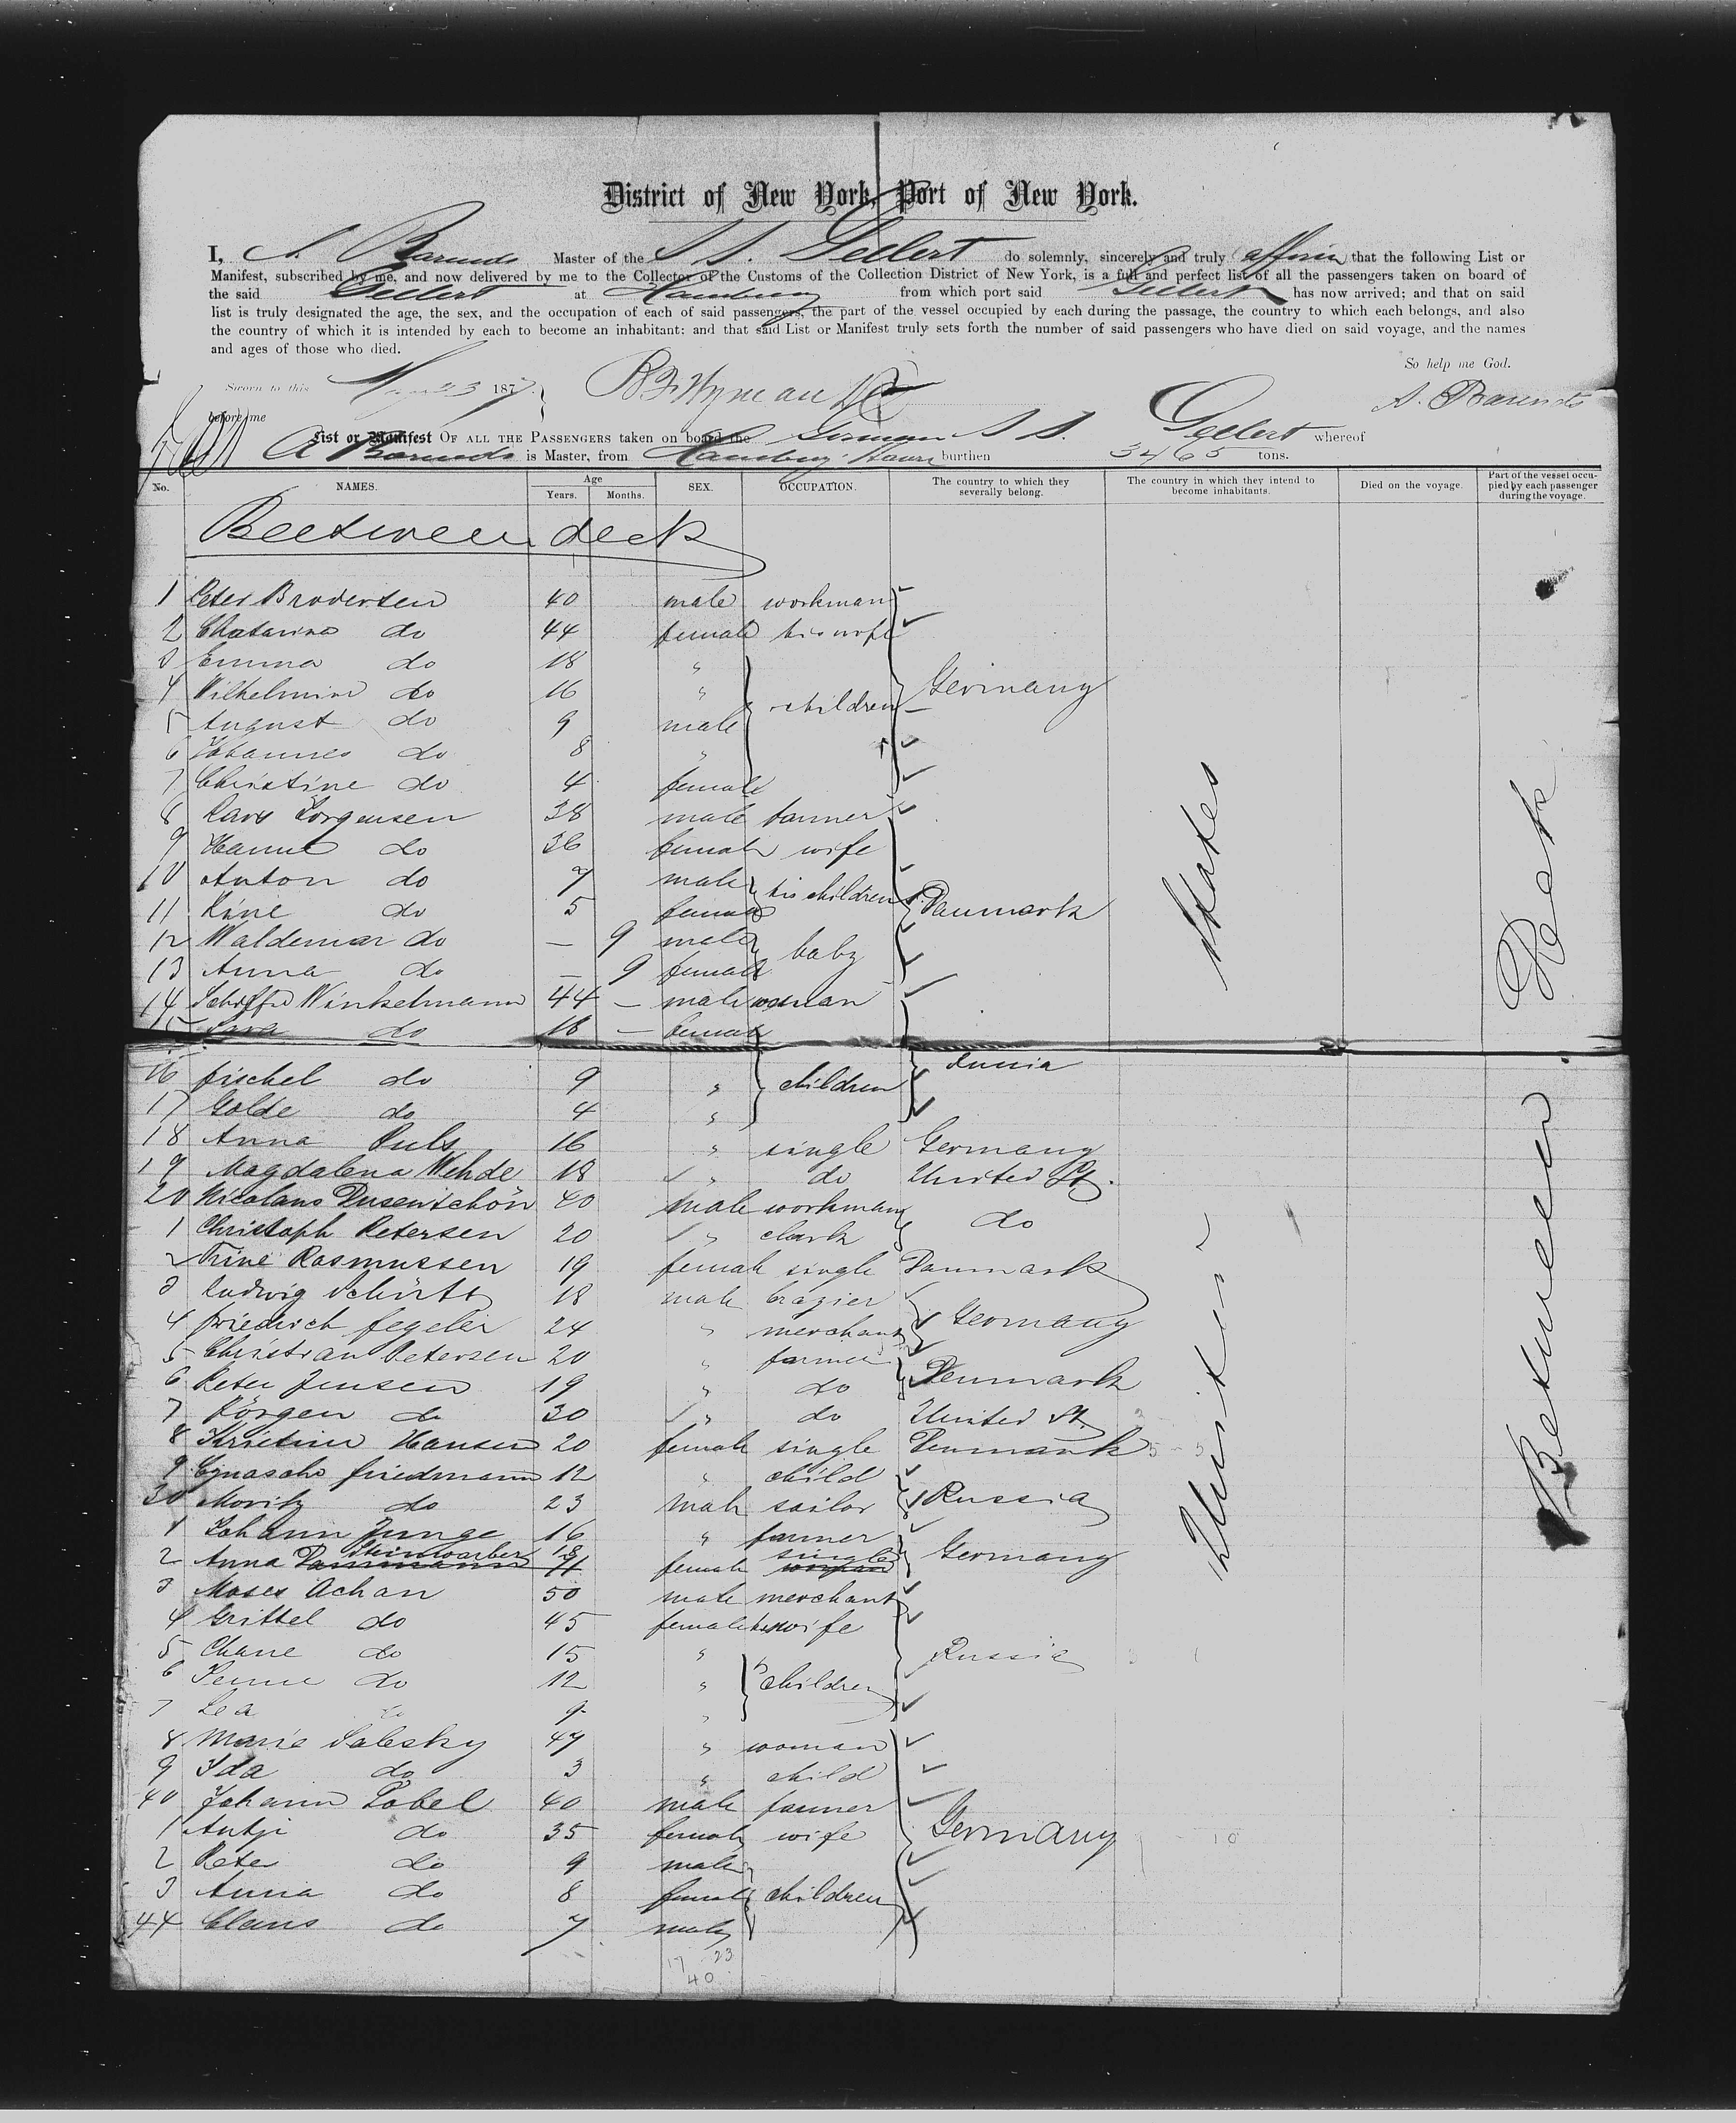 District of New York, Port of New York.
I, A. Barends Master of the S. S. Gellert do solemnly, sincerely and truly affirm that the following List or
Manifest, subscribed by me, and now delivered by me to the Collector of the Customs of the Collection District of New York, is a full and perfect list of all the passengers taken on board of
the said Gellert at Hamburg from which port said Gellert has now arrived; and that on said
list is truly designated the age, the sex, and the occupation of each of said passengers, the part of the vessel occupied by each during the passage, the country to which each belongs, and also
the country of which it is intended by each to become an inhabitant; and that said List or Manifest truly sets forth the number of said passengers who have died on said voyage, and the names
and ages of those who died.
So help me God.
Sworn to this 23 1877
A. Barends
before me
List or Manifest OF ALL THE PASSENGERS taken on board the German S S. Gellert whereof
A Barends is Master, from Hamburg Havre burthen 3465 tons.
No. NAMES. Age Years. Months. SEX. OCCUPATION. The country to which they severally belong. The country in which they intend to become inhabitants. Died on the voyage. Part of the vessel occupied by each passenger during the voyage.
Beetween deck
1 Peter Brodersen 40 male workman
2 Chatarina do 44 female his wife
3 Emma do 18 "
4 Wilhelmine do 16 " children Germany
5 August do 9 male
6 Johannes do 8 "
7 Christine do 4 female
8 Lars Jorgensen 38 male farmer
9 Hanne do 36 female wife
10 Anton do 7 male his children
11 Kine do 5 female Danmark
12 Waldemar do — 9 male baby
13 Anna do — 9 female
14 Winkelmann 44 — male
15 Sara do 18 — female
16 fischel do 9 " children Russia
17 Golde do 4 "
18 Anna Puls 16 " single Germany
19 Magdalena Wehde 18 " do United St.
20 Nicolaus Dusenschön 40 male workman do
1 Christoph Petersen 20 " clark
2 Trine Rasmussen 19 female single Danmark
3 Ludwig Schürtt 18 male brazier
4 friedrich fegeler 24 " merchant Germany
5 Christian Petersen 20 " farmer
6 Peter Jensen 19 " do Denmark
7 Jörgen do 30 " do United St.
8 Kristine Hansen 20 female single Denmark
9 friedmann 12 " child
30 Moritz do 23 male sailor Russia
1 Johann Junge 16 " farmer
2 Anna Steinwarber 18 female single Germany
3 Moses Achan 50 male merchant
4 Grittel do 45 female his wife
5 Chane do 15 " Russia
6 do 12 " children
7 Lea do 9 "
8 Marie Salesky 47 " woman
9 Ida do 3 " child
40 Johann Pobel 40 male farmer
1 Antje do 35 female wife Germany
2 Peter do 9 male
3 Anna do 8 female children
44 Claus do 7 male
17 23
40
United States
Between Deck